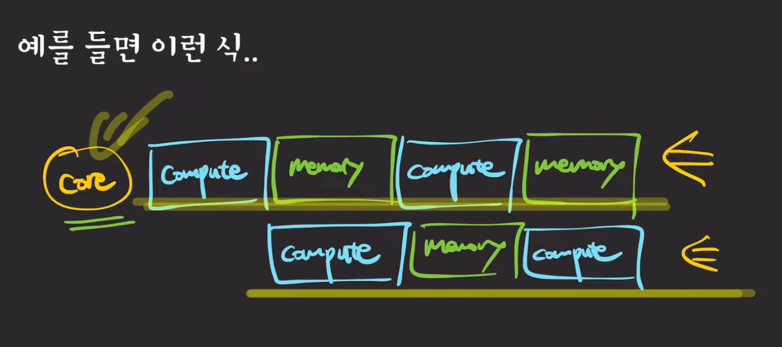 예를 들면 이런 식..
Core compute memory compute memory
compute memory compute